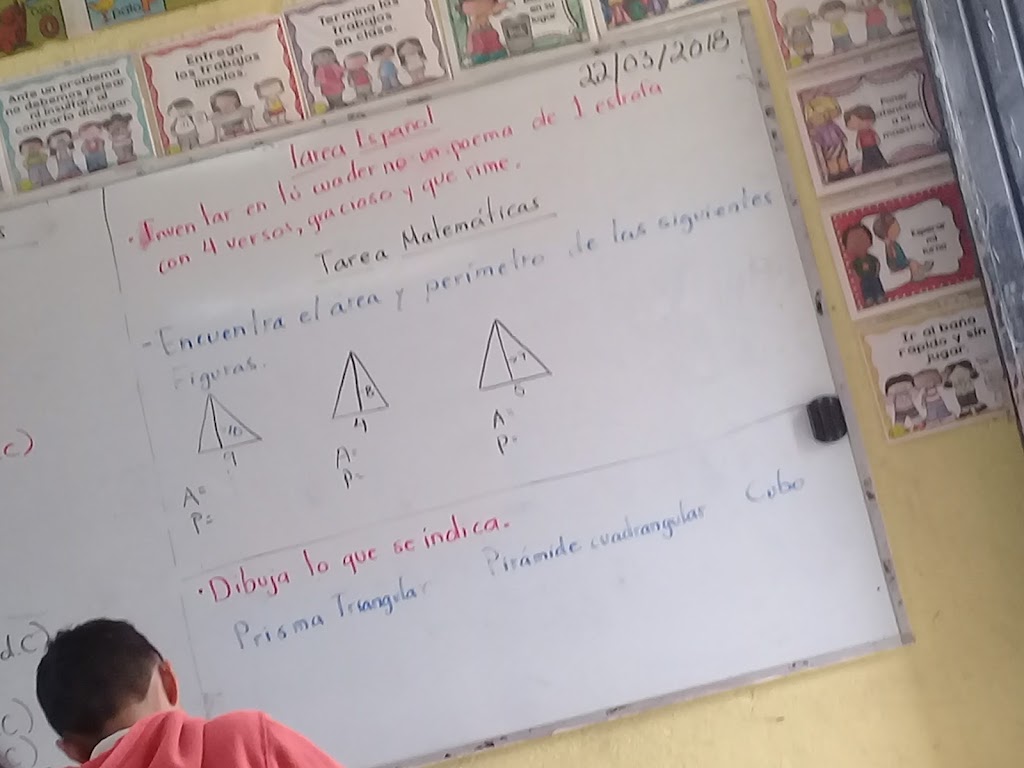 Ante un problema
no debemos pelear
ni insultar, al
contrario dialogar
Entrega
los trabajos
limpios.
Termina los
trabajos
en clase.
en su
lugar
22/03/2018
Tarea Español
· Inventar en tú cuaderno un poema de 1 estrofa
con 4 versos, gracioso y que rime.
Tarea Matemáticas
- Encuentra el area y perímetro de las siguientes
Figuras.
10
9
A=
P=
8
4
A=
P=
A=
P=
· Dibuja lo que se indica.
Prisma Triangular
Pirámide cuadrangular
Cubo
c)
d.c)
c)
c)
Poner
atención
a la
maestra
Esperar
mi
turno
Ir al baño
rápido y sin
jugar.